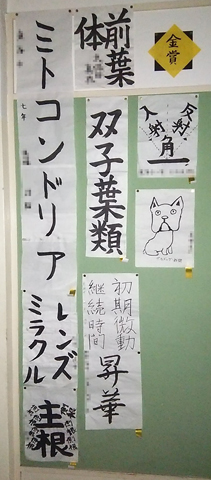 前葉体
金賞
ミトコンドリア
双子葉類
入射角
反射
レンズ
ミラクル
初期微動
継続時間
昇華
主根